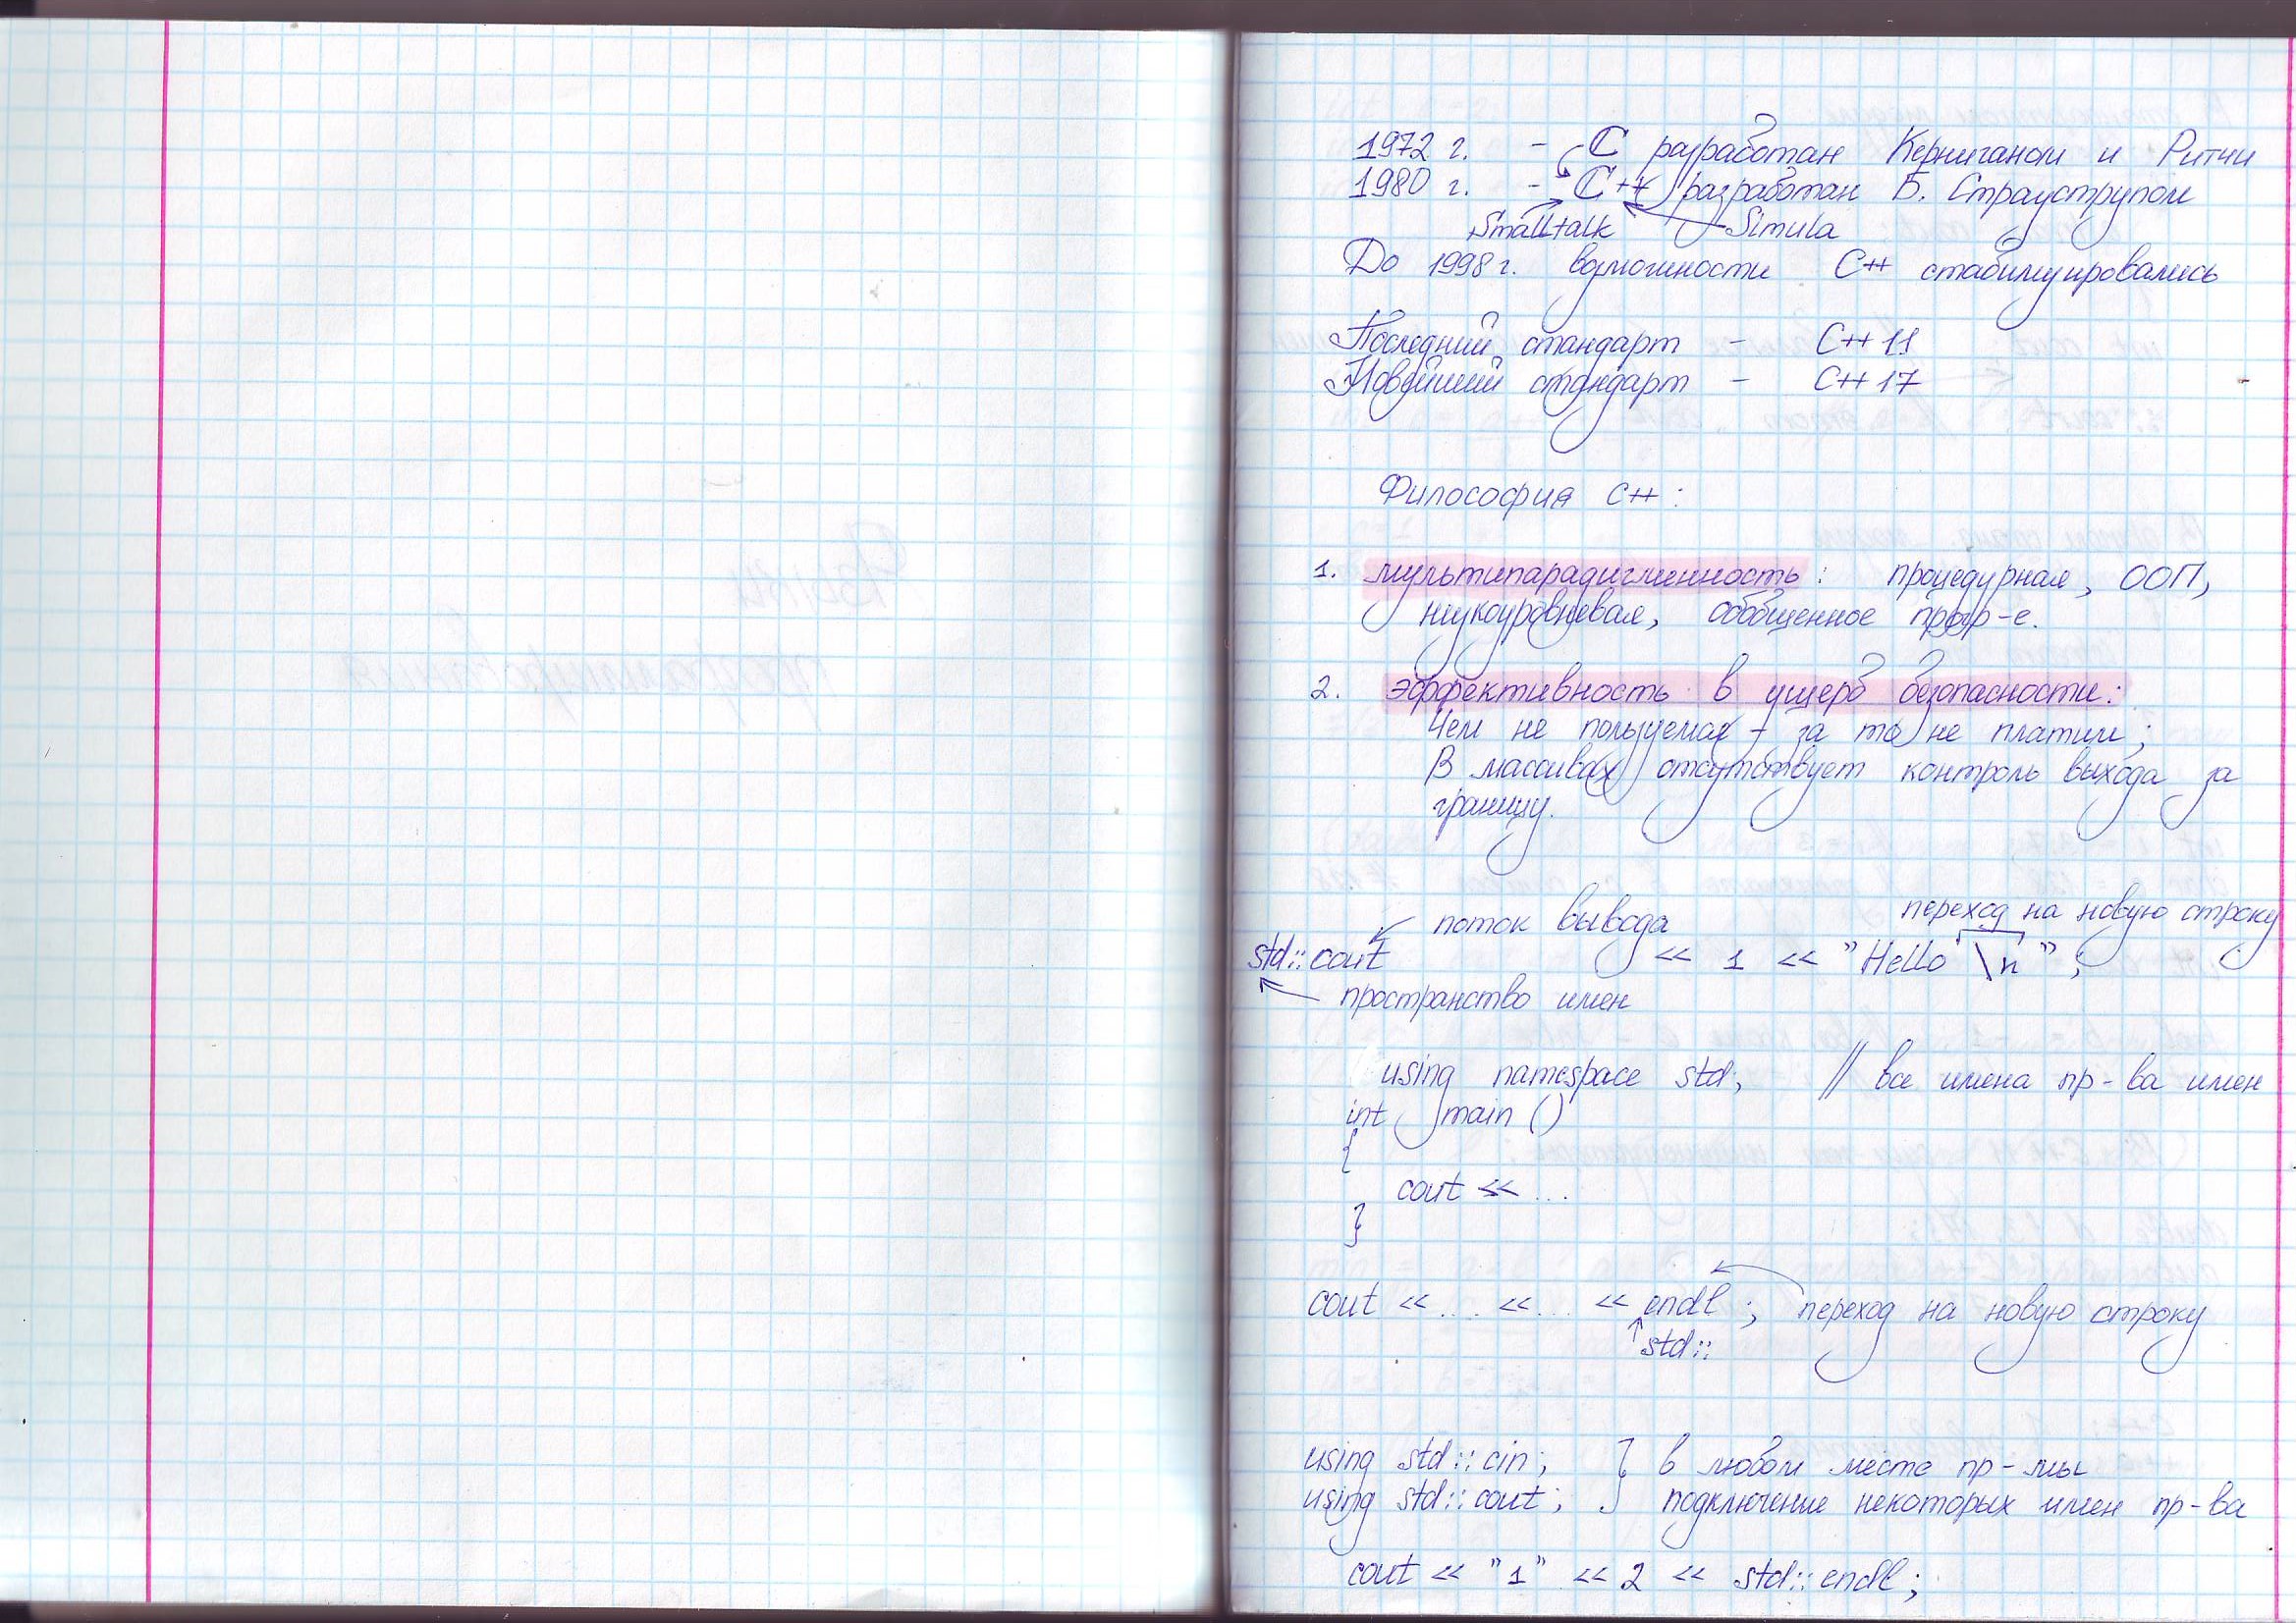 1972 г. - C разработан Керниганом и Ритчи
1980 г. - C++ разработан Б. Страуструпом
Smalltalk Simula
До 1998 г. возможности C++ стабилизировались
Последний стандарт - C++ 11
Новейший стандарт - C++ 17
Философия C++ :
1. мультипарадигменность : процедурная, ООП,
низкоуровневая, обобщенное прогр-е.
2. эффективность в ущерб безопасности:
Чем не пользуемся - за то не платим ;
В массивах отсутствует контроль выхода за
границу.
поток вывода переход на новую строку
std::cout << 1 << "Hello \n" ;
пространство имен
using namespace std; // все имена пр-ва имен
int main ()
{
cout << ...
}
cout << ... << ... << endl ; переход на новую строку
std::
using std::cin; } в любом месте пр-мы
using std::cout; подключение некоторых имен пр-ва
cout << "1" << 2 << std::endl ;